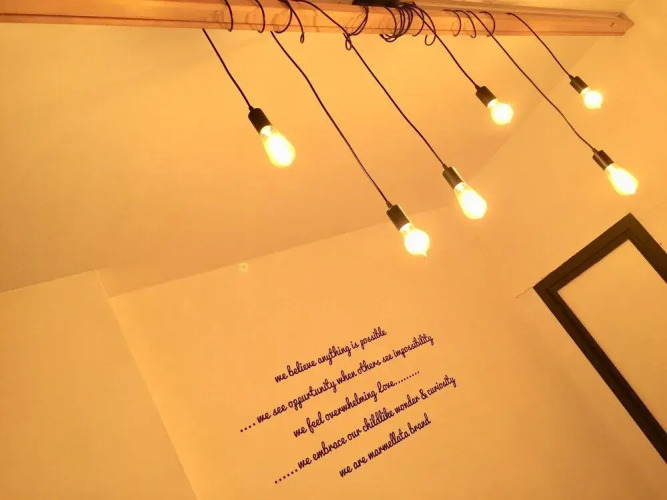 we believe anything is possible
.... we see oppurtunity when others see impossibility
we feel overwhelming love........
...... we embrace our childlike wonder & curiosity
we are marmellata brand